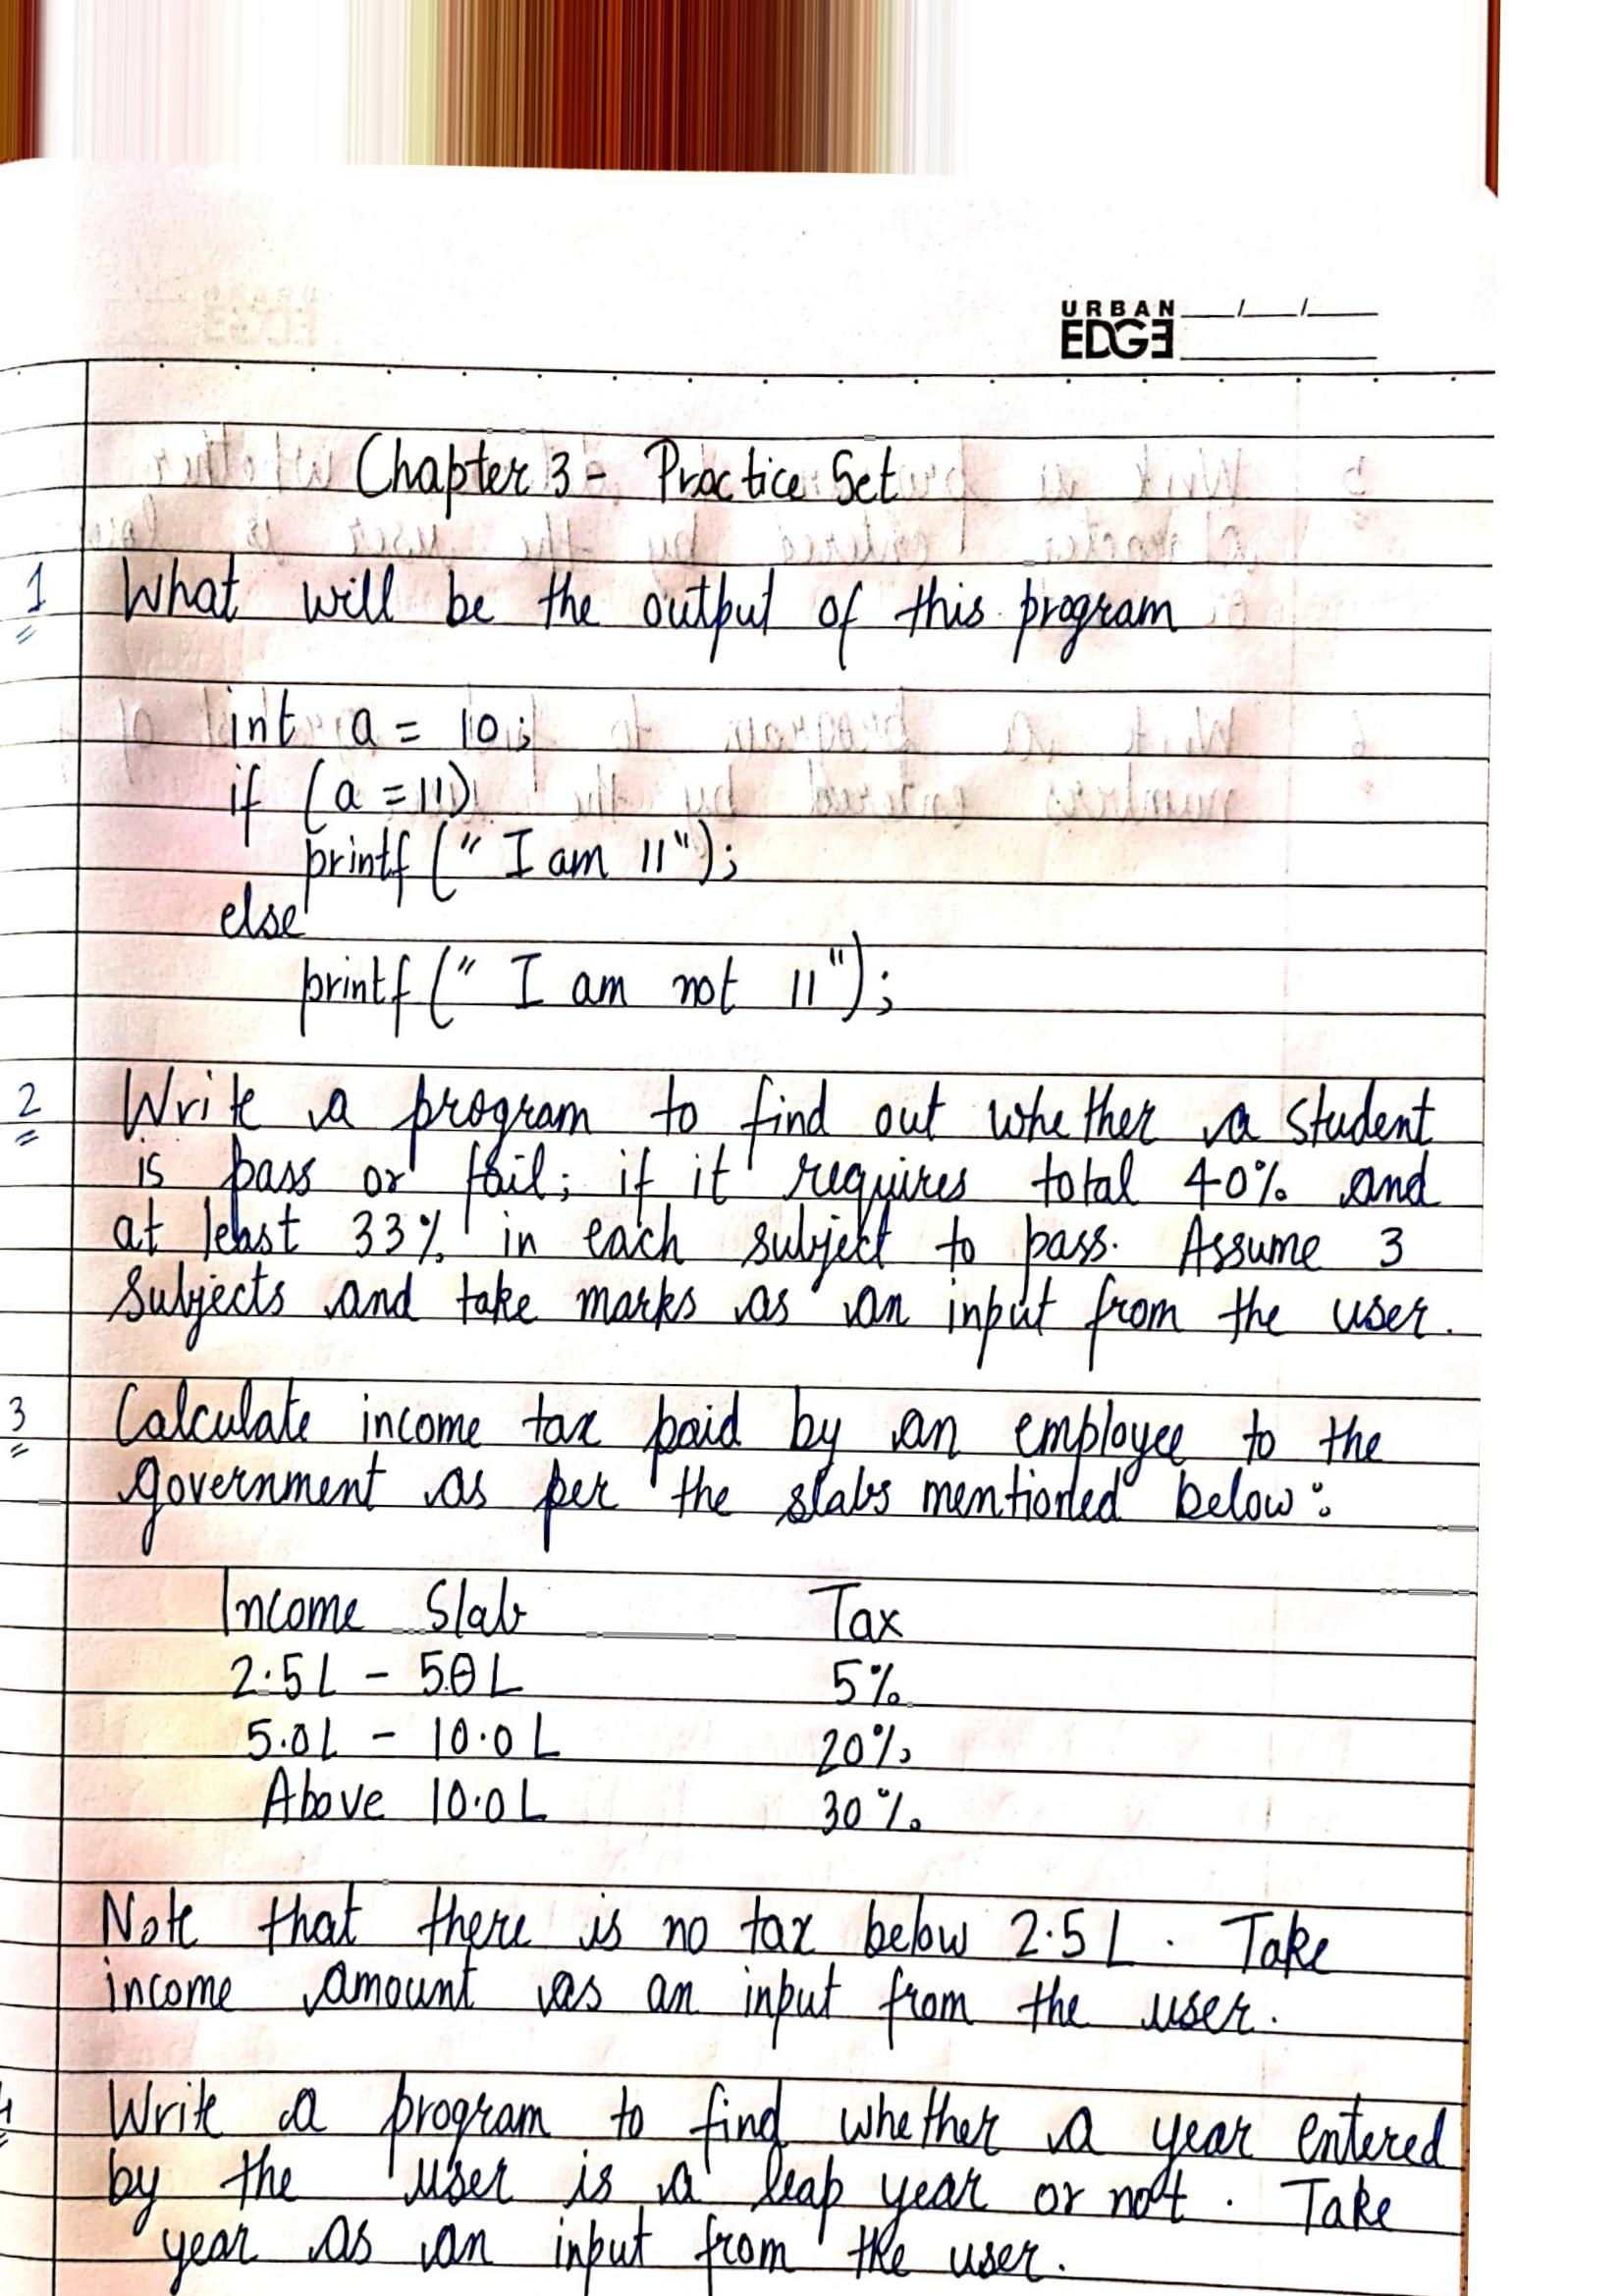 URBAN
EDGE
Chapter 3 - Practice Set
1 What will be the output of this program
int a = 10;
if (a = 11)
printf (" I am 11");
else
printf (" I am not 11");
2 Write a program to find out whether a student
is pass or fail; if it requires total 40% and
at least 33% in each subject to pass. Assume 3
Subjects and take marks as an input from the user.
3 Calculate income tax paid by an employee to the
government as per the slabs mentioned below:
Income Slab Tax
2.5L - 5.0L 5%
5.0L - 10.0L 20%
Above 10.0L 30%
Note that there is no tax below 2.5L. Take
income amount as an input from the user.
4 Write a program to find whether a year entered
by the user is a leap year or not. Take
year as an input from the user.